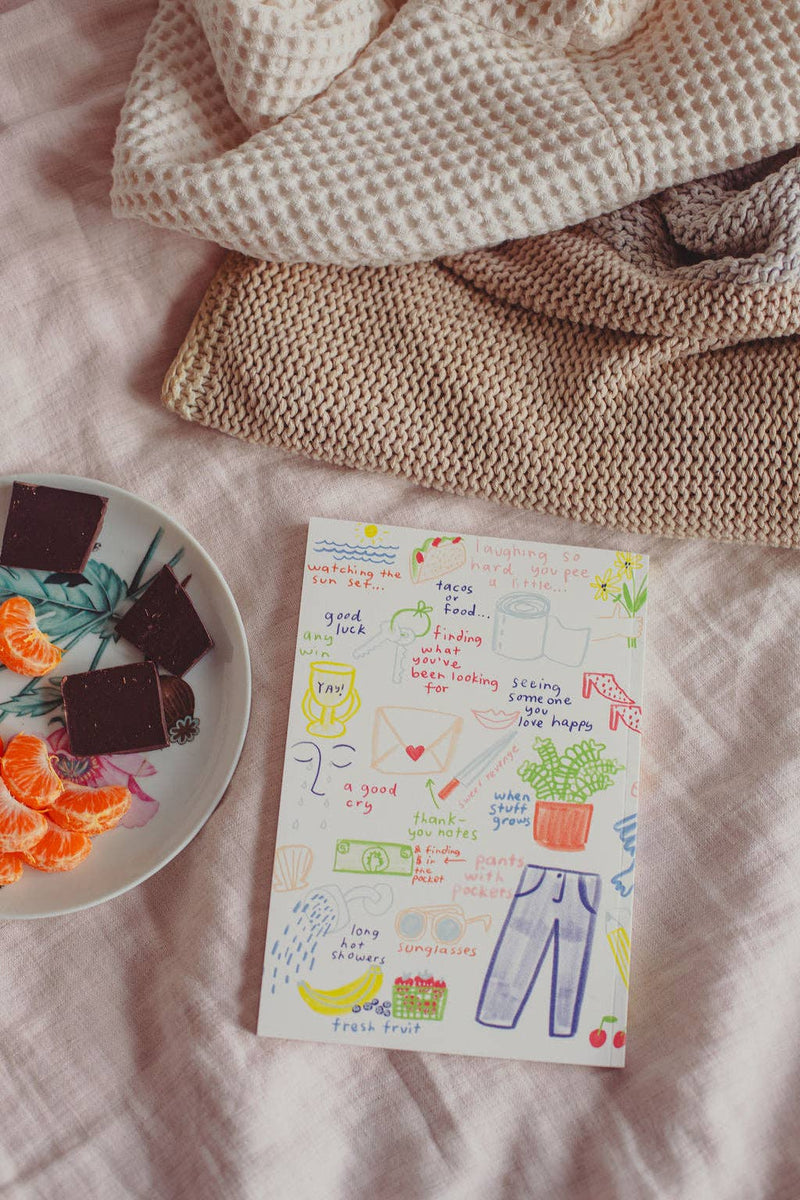 laughing so
hard you pee
a little...
watching the
sun set...
tacos
or
food...
good
luck
any
win
finding
what
you've
been looking
for
YAY!
seeing
someone
you
love happy
a good
cry
sweet revenge
thank-
you notes
when
stuff
grows
& finding
$ in
the
pocket
pants
with
pockets
long
hot
showers
sunglasses
fresh fruit